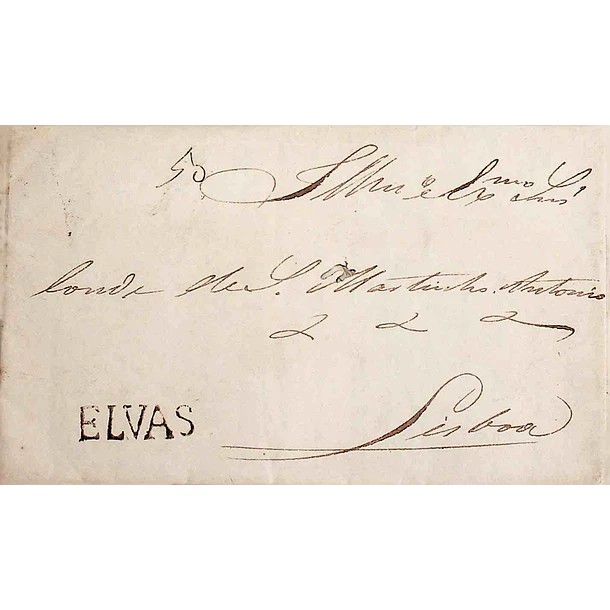 50 Illmo e Exmo Snr
Conde de S. Martinho Antonio
ELVAS Lisboa